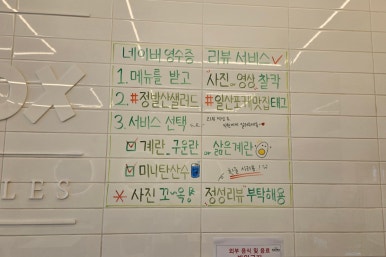 네이버 영수증 리뷰 서비스
1. 메뉴를 받고 사진 or 영상 찰칵
2. #정발산샐러드 #일산포케맛집 태그
3. 서비스 선택
계란 - 구운란 or 삶은계란
미니탄산수
사진 꼬~옥 정성리뷰 부탁해용
OX
LES
외부 음식 및 음료